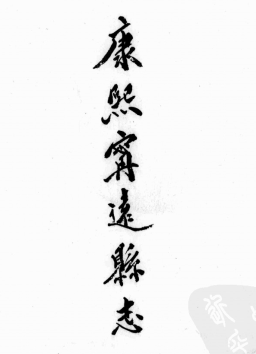 康熙寧遠縣志